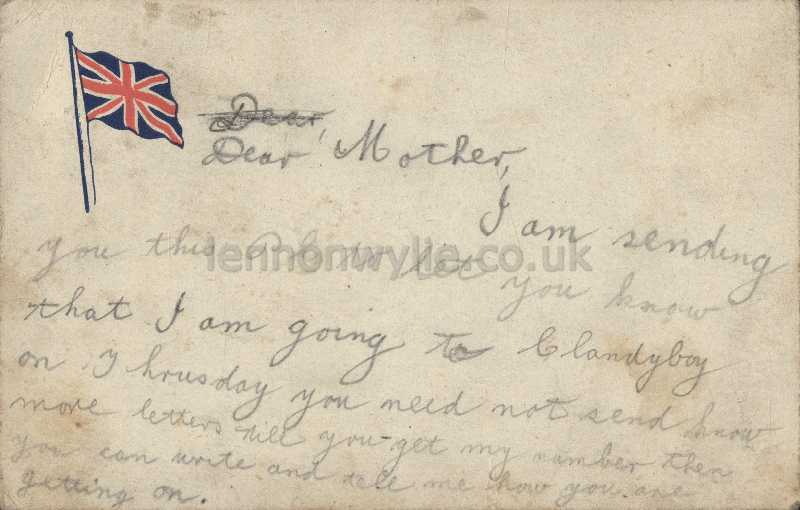 Dear,
Dear Mother,
I am sending
you this to let you know
that I am going to Clandyboy
on Thrusday you need not send know
more letters till you get my number then
you can write and tell me how you are
getting on.
lennonwylie.co.uk